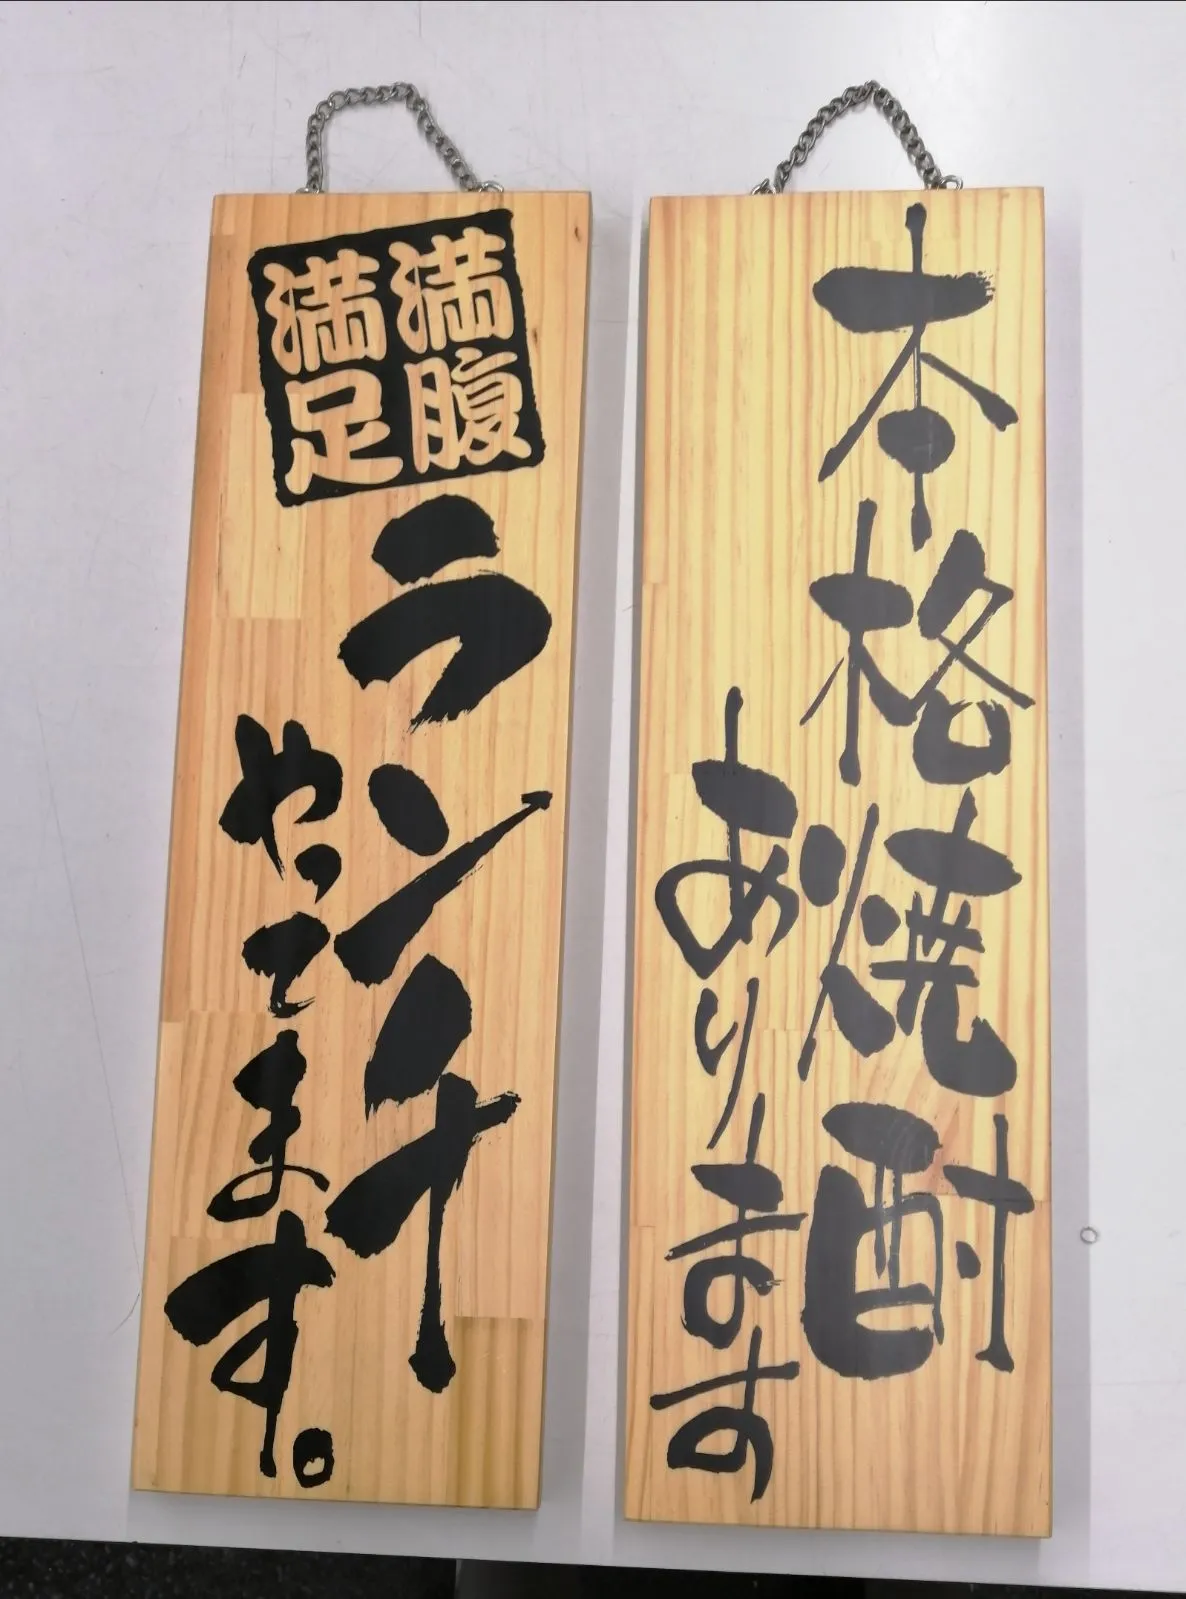 満腹
満足
ランチ
やってます。
本格焼酎
あります